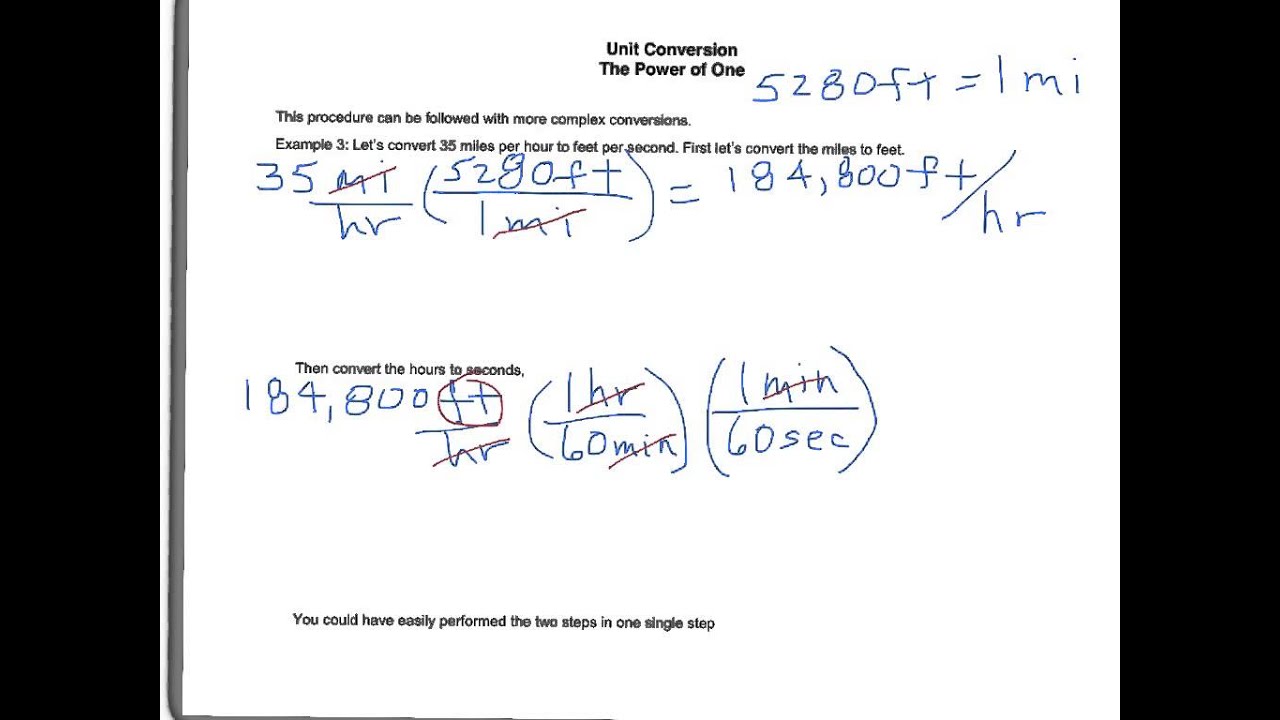 Unit Conversion
The Power of One
5280ft = 1 mi
This procedure can be followed with more complex conversions.
Example 3: Let's convert 35 miles per hour to feet per second. First let's convert the miles to feet.
35 mi/hr (5280ft/1mi) = 184,800ft/hr
Then convert the hours to seconds,
184,800 ft/hr (1hr/60min) (1min/60sec)
You could have easily performed the two steps in one single step